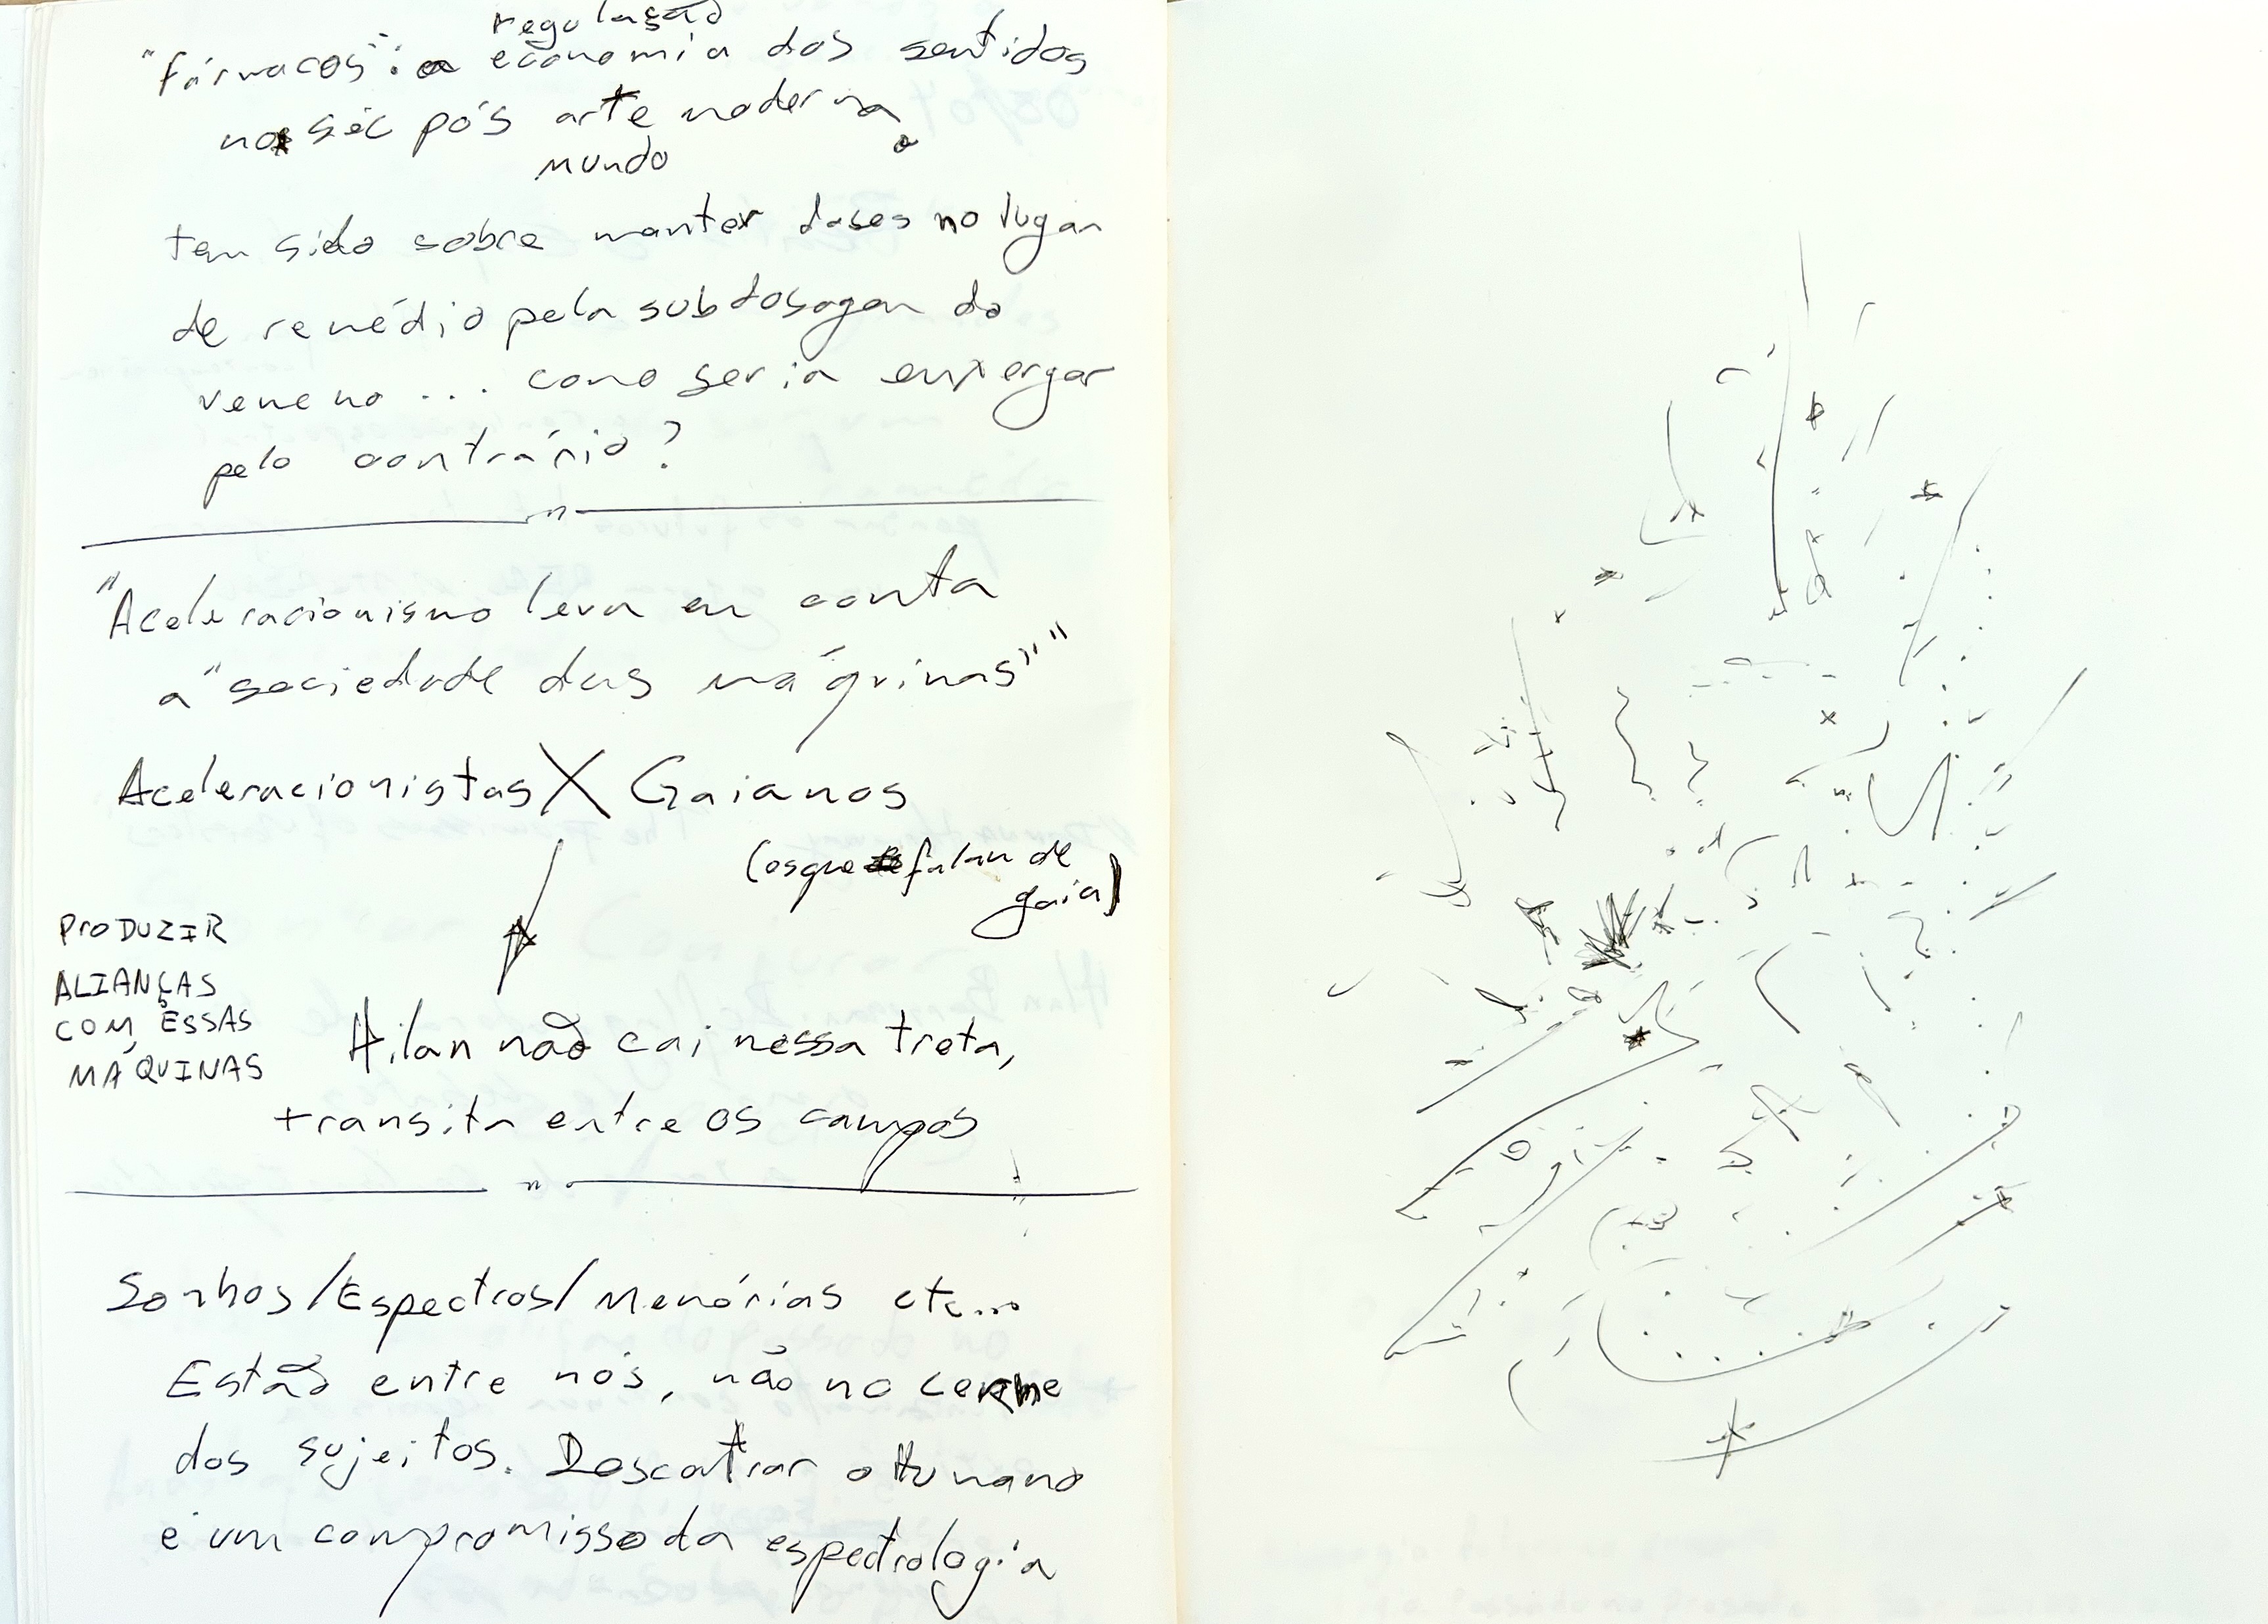 regulação
"fármacos": a economia dos sentidos
no séc pós arte moderna
mundo
tem sido sobre manter doses no lugar
de remédio pela subdosagem do
veneno ... como seria enxergar
pelo contrário?
"Aceleracionismo leva em conta
a "sociedade das máquinas""
Aceleracionistas X Gaianos
(os que falam de
gaia)
PRODUZIR
ALIANÇAS
COM ESSAS
MÁQUINAS
Hilan não cai nessa treta,
transita entre os campos
Sonhos/Espectros/Memórias etc...
Estão entre nós, não no cerne
dos sujeitos. Descentrar o humano
é um compromisso da espectrologia